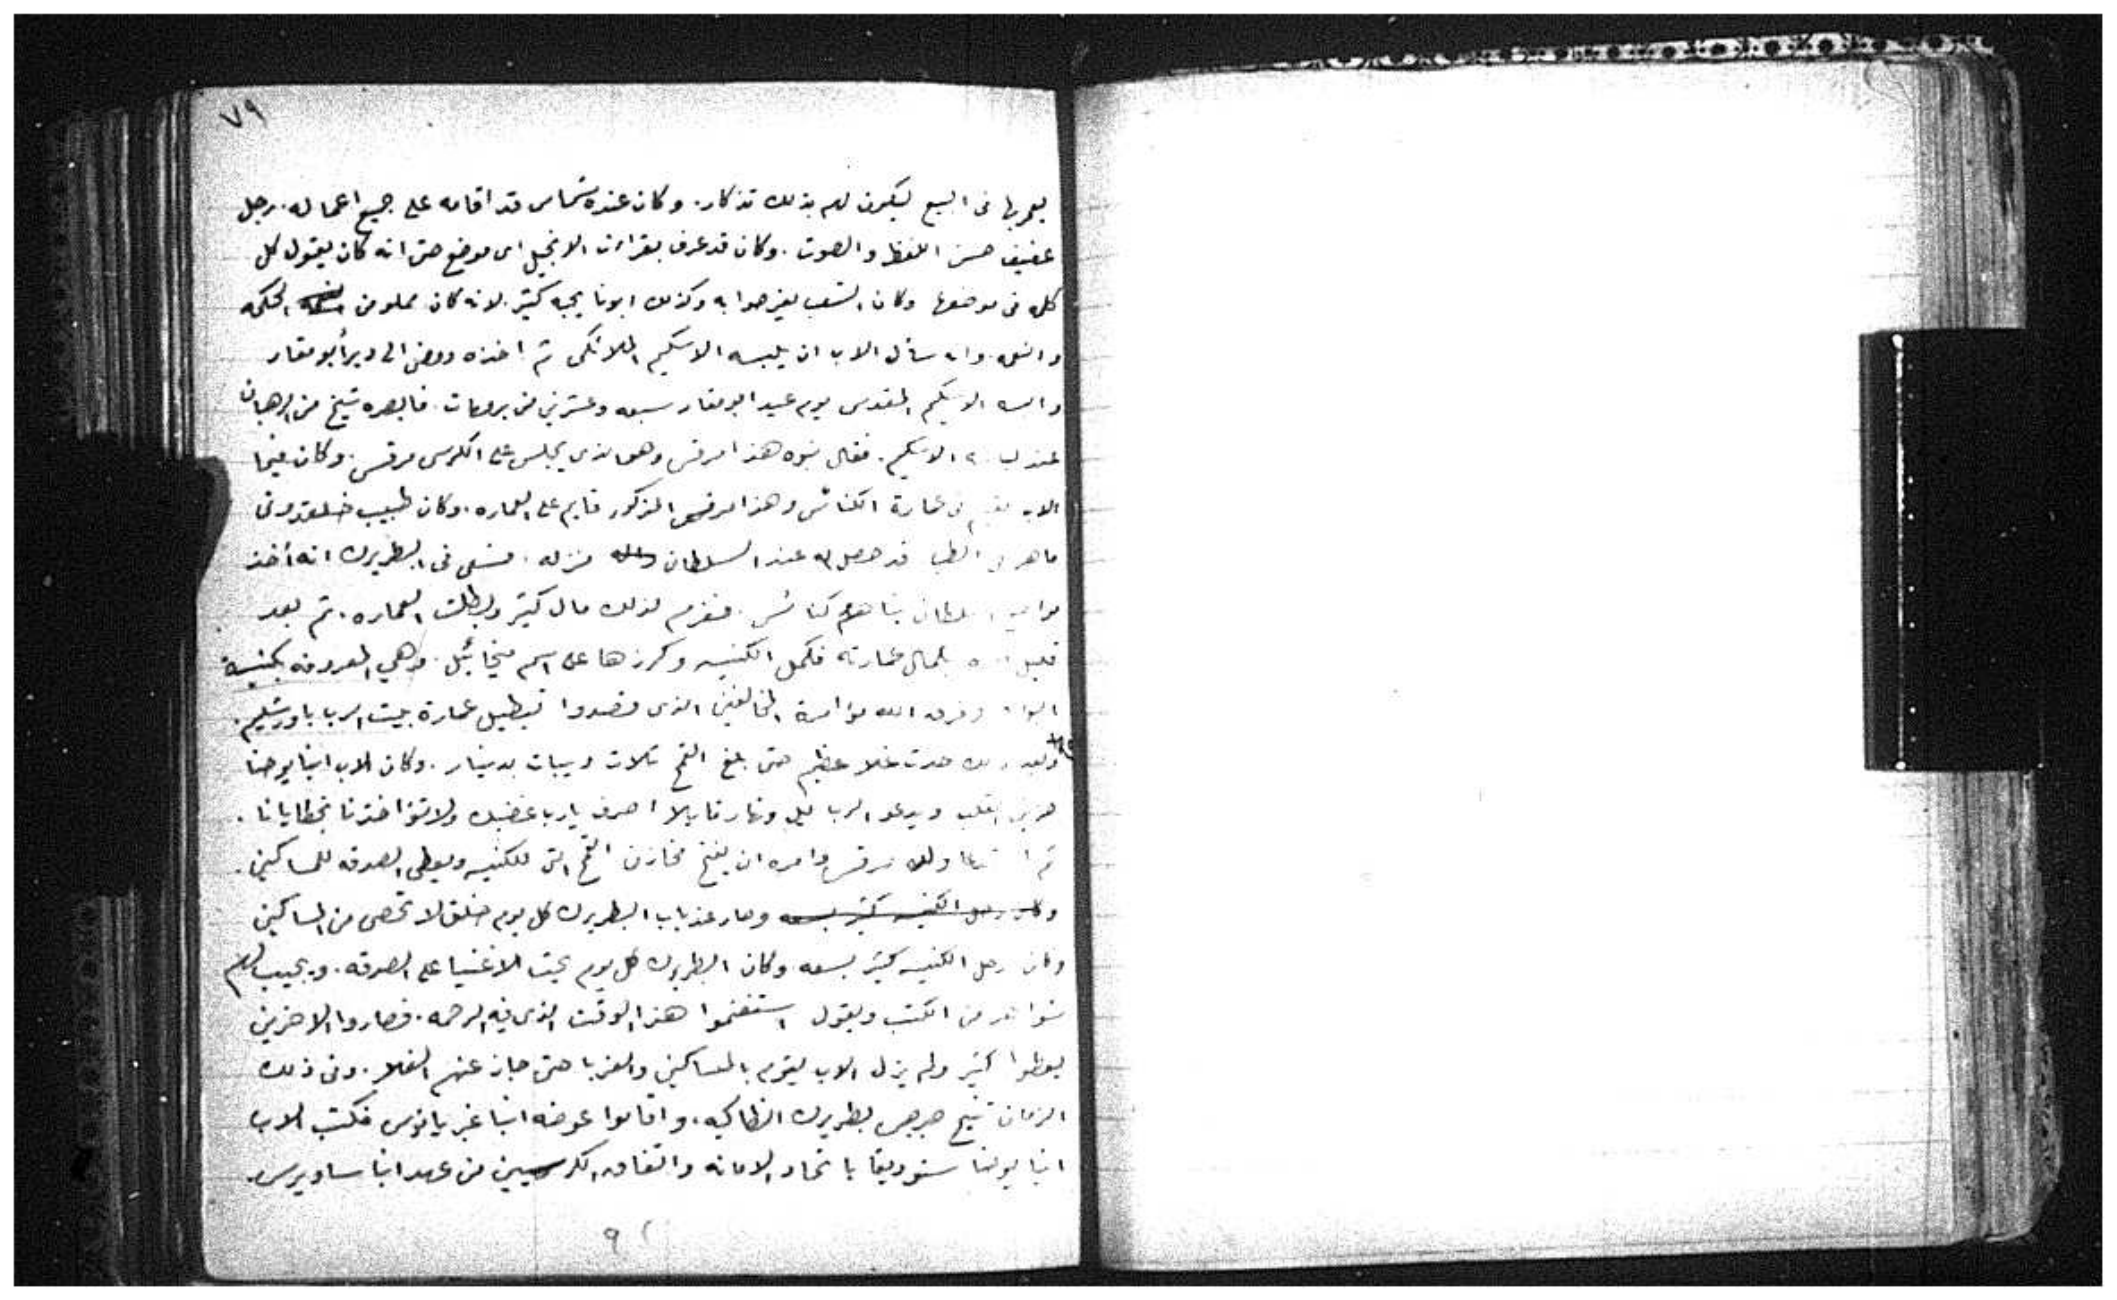 ٧٩
يعمر بها فى البيع ليكون لهم بذلك تذكار. وكان عنده شماس قد اقامه على جميع اعماله. رجل
عفيف حسن اللفظ والصوت. وكان قد عرف بقراءت الانجيل اى موضع حتى انه كان يقول كل
كلمه فى موضعها وكان الشعب يفرحوا به وكذلك ابونا يحبه كثير. لانه كان مملو من الحكمه
وانه سأل الاب ان يلبسه الاسكيم الملائكى ثم اخذه ومضى الى دير أبو مقار
والبسه الاسكيم المقدس يوم عيد ابو مقار سبعه وعشرين من برمهات. فابصره شيخ من الرهبان
عند الاسكيم. فقال هذا مرقس وهو الذى يجلس على الكرسى مرقس. وكان فيما
الاب فى عمارة الكنائس وهذا مرقس المذكور قايم على العماره. وكان طبيب خلقدونى
ماهر فى الطب قد حصل له عند السلطان منزله. فسعى فى البطريرك انه أخذ
السلطان بناهم كنائس. فغرم لذلك مال كثير وبطلت العماره. ثم بعد
قليل بكمال عمارته فكمل الكنيسه وكرزها على اسم ميخائيل. وهي المعروفه بكنيسة
وفرق الله مؤامرة المخالفين الذى قصدوا تبطيل عمارة بيت الرب باورشليم.
وبعد ذلك حدث غلا عظيم حتى بلغ القمح ثلاث ويبات بدينار. وكان الاب انبا يوحنا
حزين القلب ويدعو الرب ليل ونهار قايلا اصرف يارب غضبك ولا تؤاخذنا بخطايانا.
ثم ولده مرقس وامره ان يفتح مخازن القمح التى للكنيسه ويعطى الصدقه للمساكين.
وكان دخل الكنيسه كثير بسعه وصار عند باب البطريرك كل يوم خلق لا تحصى من المساكين
وكان دخل الكنيسه كثير بسعه. وكان البطريرك كل يوم يحث الاغنيا على الصدقه. ويجيب لهم
شواهد من الكتب ويقول استغنموا هذا الوقت الذى فيه الرحمه. فصاروا الاخرين
يعطوا كثير ولم يزل الاب يقوم بالمساكين والغربا حتى جاز عنهم الغلا. وفى ذلك
الزمان تنيح جرجس بطريرك انطاكيه. واقاموا عوضه انبا غبريانوس فكتب الاب
انبا يوحنا سنوديقا باتحاد الامانه واتفاق الكرسيين من عهد انبا ساويرس.